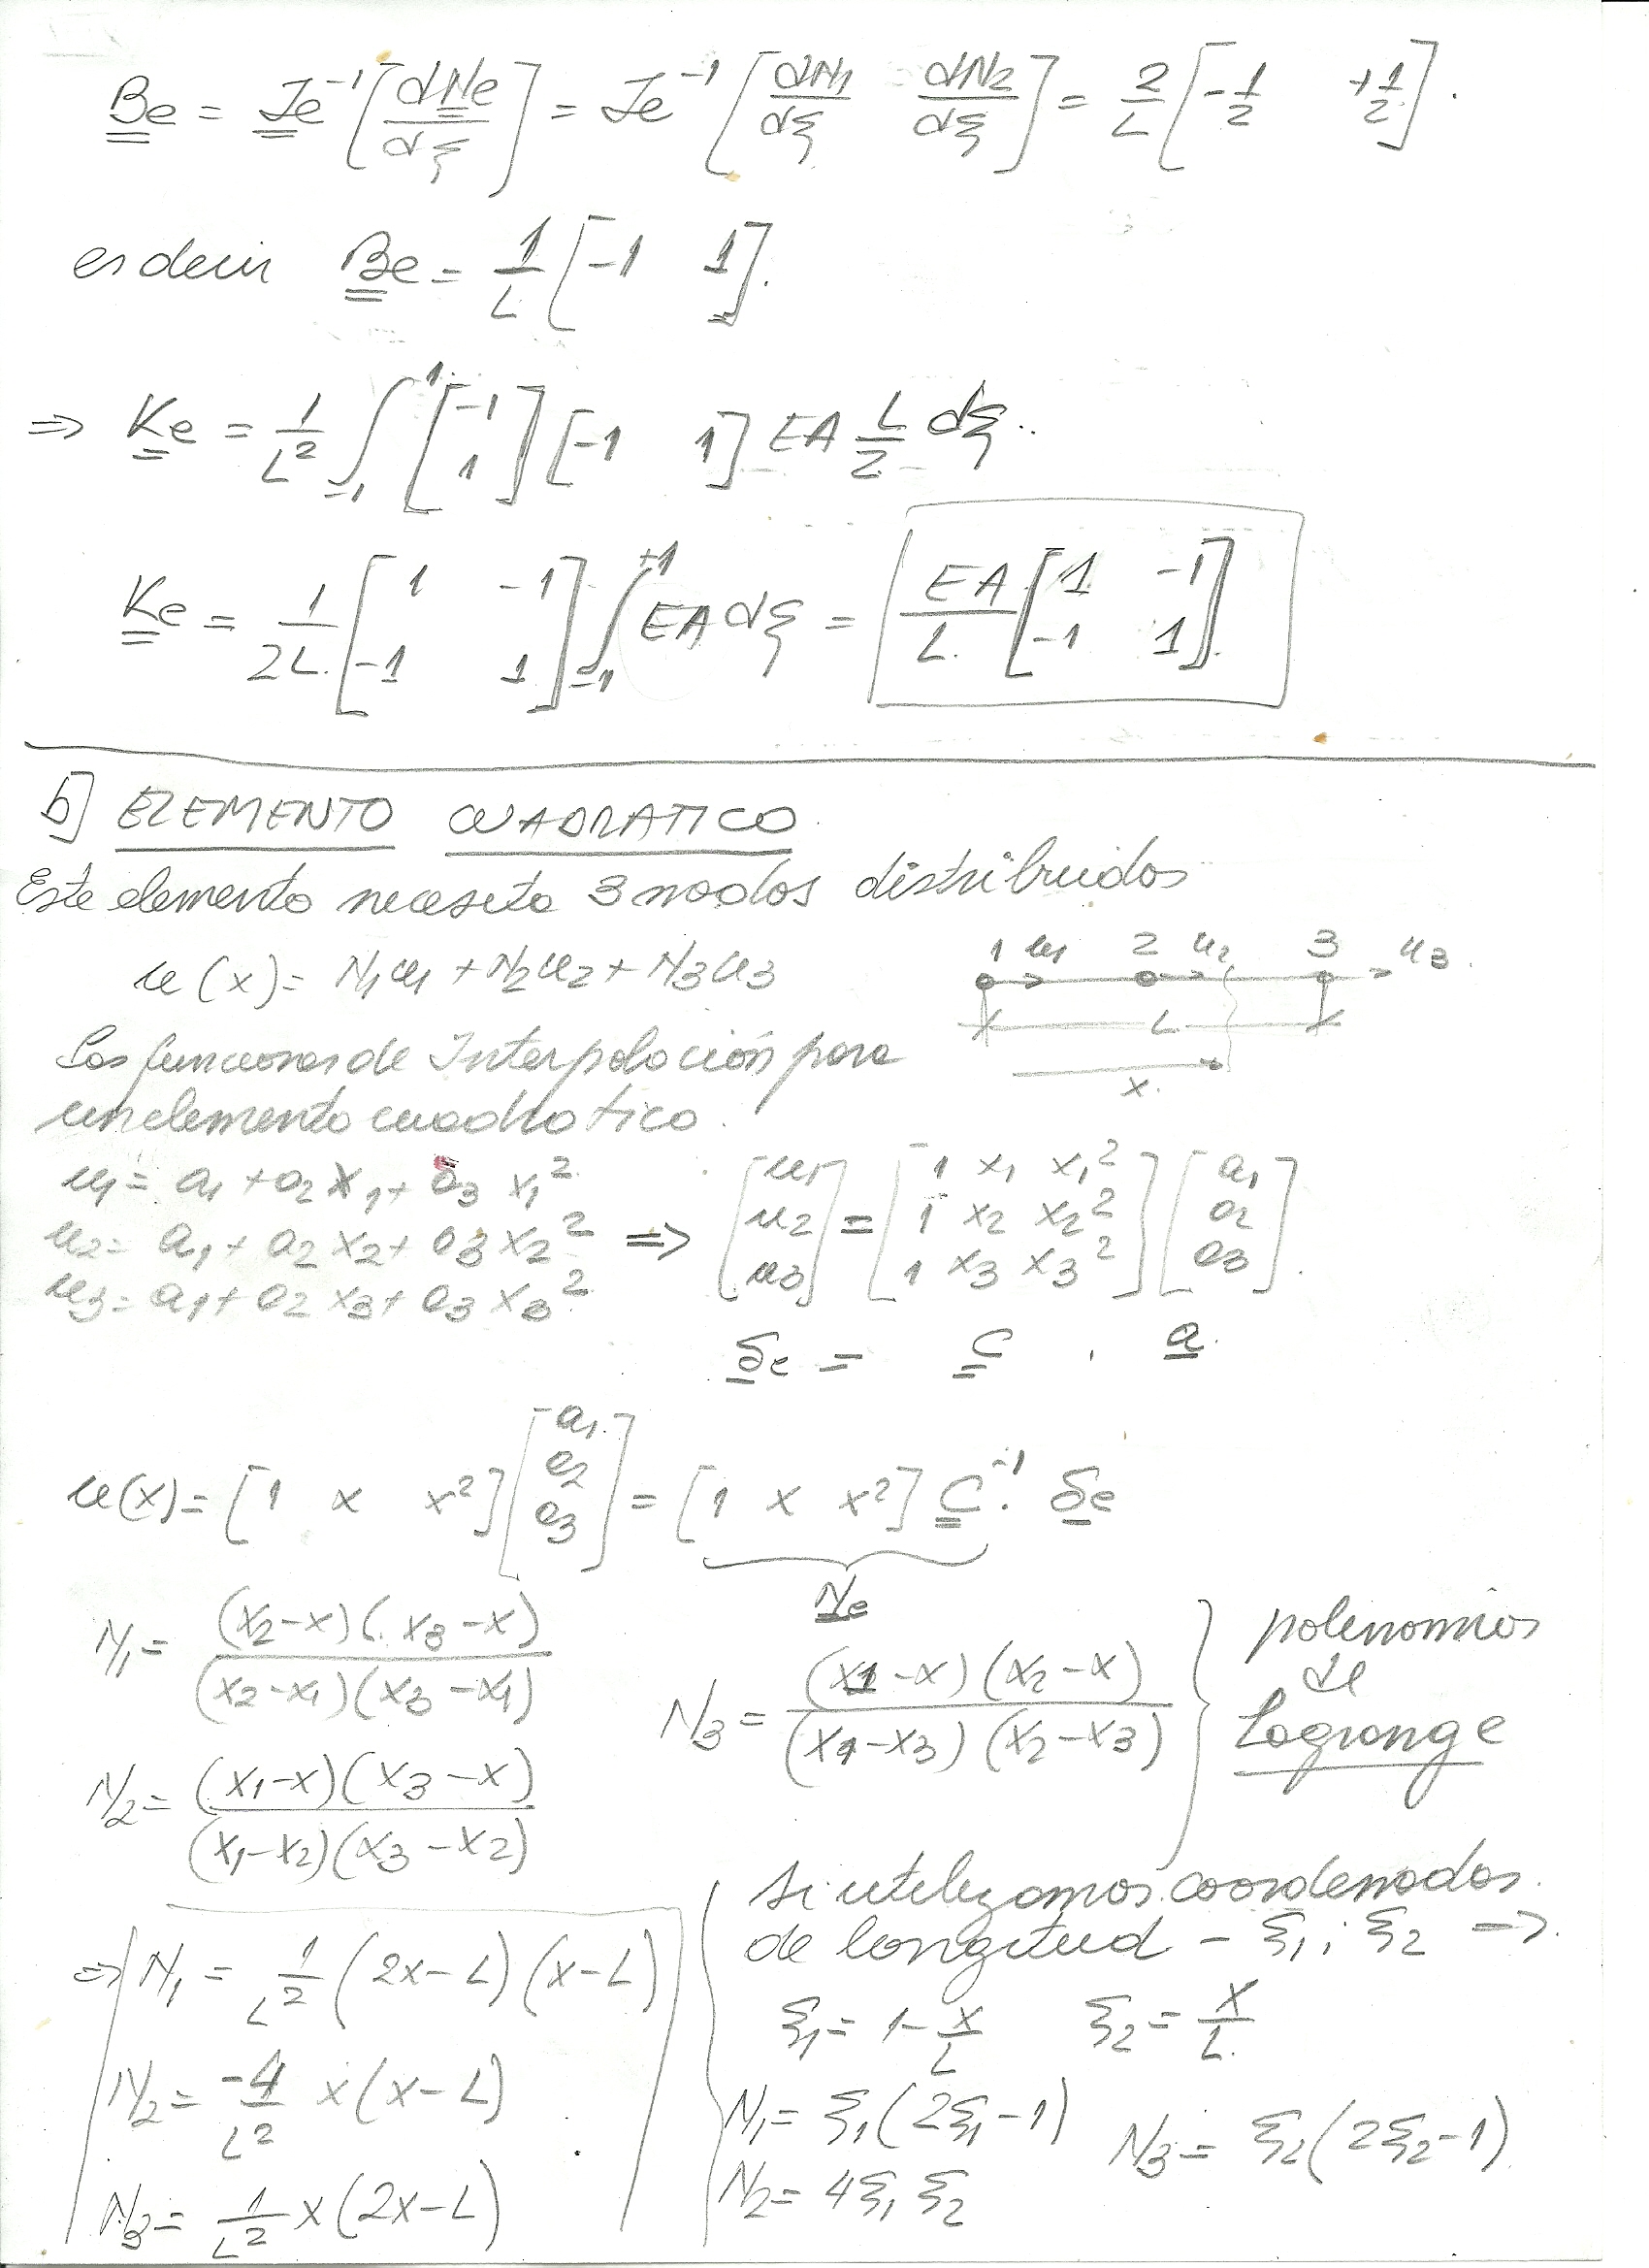 Be = Je⁻¹ [dNe/dξ] = Je⁻¹ [dN1/dξ dN2/dξ] = 2/L [-1/2 +1/2].
es decir Be = 1/L [-1 1].
⇒ Ke = 1/L² ∫₋₁¹ [-1; 1] [-1 1] EA L/2 dξ..
Ke = 1/2L [1 -1; -1 1] ∫₋₁⁺¹ EA dξ = EA/L [1 -1; -1 1].
b] ELEMENTO CUADRATICO.
Este elemento necesita 3 nodos distribuidos
u(x) = N1u1 + N2u2 + N3u3
1 u1 2 u2 3 u3
L
x.
Las funciones de Interpolación para
un elemento cuadratico.
u1 = a1 + a2 x1 + a3 x1²
u2 = a1 + a2 x2 + a3 x2²
u3 = a1 + a2 x3 + a3 x3²
⇒ [u1; u2; u3] = [1 x1 x1²; 1 x2 x2²; 1 x3 x3²] [a1; a2; a3].
δe = C . a.
u(x) = [1 x x²] [a1; a2; a3] = [1 x x²] C⁻¹. δe
Ne
N1 = (x2-x)(x3-x)/(x2-x1)(x3-x1)
N2 = (x1-x)(x3-x)/(x1-x2)(x3-x2)
N3 = (x1-x)(x2-x)/(x1-x3)(x2-x3)
polinomios
de
Lagrange
⇒ N1 = 1/L² (2x-L)(x-L)
N2 = -4/L² x(x-L)
N3 = 1/L² x(2x-L)
Si utilizamos coordenadas.
de longitud - ξ1; ξ2 →.
ξ1 = 1-x/L ξ2 = x/L.
N1 = ξ1(2ξ1-1) N3 = ξ2(2ξ2-1)
N2 = 4ξ1ξ2